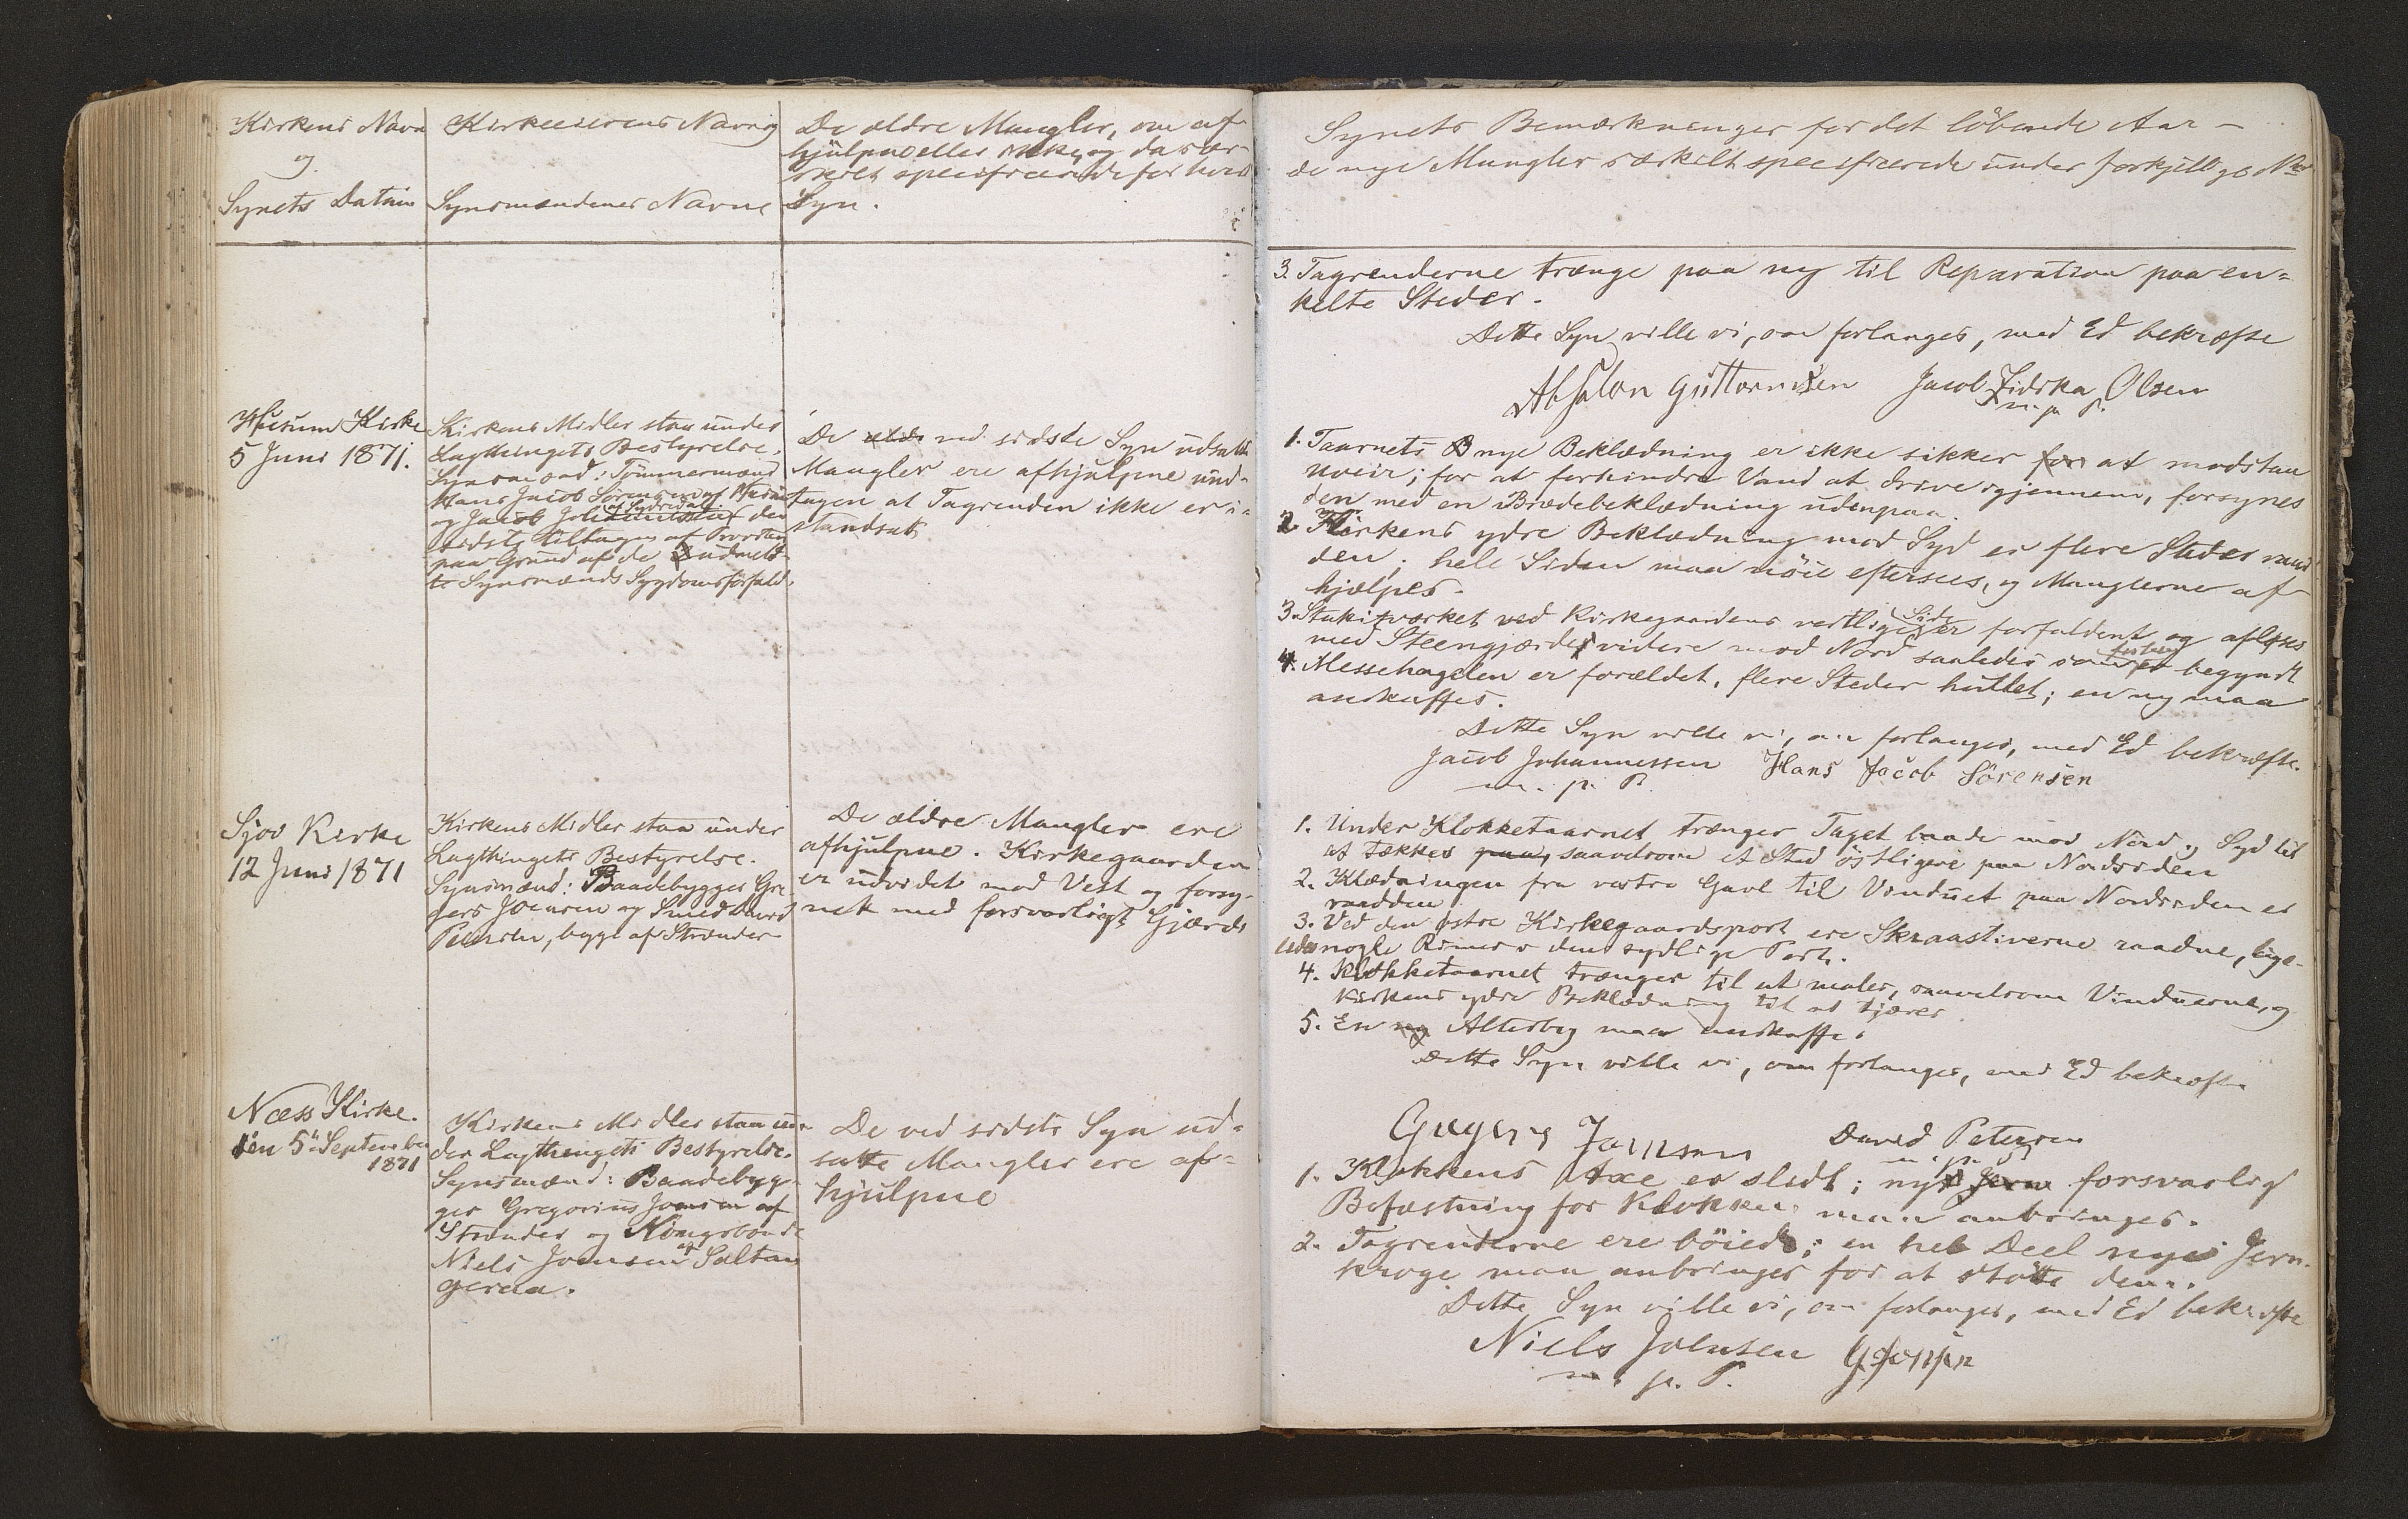 Kirkens Navn
og
Synets Datum
Kirkeeierens Navn og
Synsmændenes Navne
De ældre Mangler, om af-
hjulpne eller ikke, og da sær-
skilt specificerede for hvert
Syn.
Husum Kirke
5 Juni 1871.
Kirkens Midler staa under
Lagthingets Bestyrelse.
Synsmænd: Tømmermænd
Hans Jacob Sörensen af Husum
og Jacob Johannessen af Sydredal (den
sidste tiltagen af Provsten
paa Grund af de udmeld-
te Synsmænds Sygdomsforfald.
De ved sidste Syn udsatte
Mangler ere afhjulpne und-
tagen at Tagrenden ikke er i-
standsat
Sjov Kirke
12 Juni 1871
Kirkens Midler staa under
Lagthingets Bestyrelse.
Synsmænd: Baadebygger Gre-
gers Joensen og Smed David
Petersen, begge af Strænder
De ældre Mangler ere
afhjulpne. Kirkegaarden
er udvidet mod Vest og forsy-
net med forsvarligt Gjærde
Næss Kirke.
den 5te September
1871
Kirkens Midler staa un-
der Lagthingets Bestyrelse.
Synsmænd: Baadebyg-
ger Gregorius Joensen af
Strænder og Kongsbonde
Niels Joensen af Saltan-
geraa.
De ved sidste Syn ud-
satte Mangler ere af-
hjulpne
Synets Bemærkninger for det löbende Aar –
de nye Mangler særskilt specificerede under forskjellige Nr
3. Tagrenderne trænge paa ny til Reparation paa en-
kelte Steder.
Dette Syn ville vi, om forlanges, med Ed bekræfte
Absalon Guttormsen Jacob Zidska Olsen
m. p. P.
1. Taarnets nye Beklædning er ikke sikker for at modstaa
Uveir; for at forhindre Vand at drive igjennem, forsynes
den med en Brædebeklædning udenpaa.
2 Kirkens ydre Beklædning mod Syd er flere Steder raad-
den; hele Siden maa nöie eftersees, og Manglerne af-
hjælpes.
3. Stakitværket ved Kirkegaardens vestlige Side er forfaldent og aflöses
med Steengjærde videre mod Nord saaledes som er begyndt
4. Messehagelen er forældet, flere Steder hullet; en ny maa
anskaffes.
Dette Syn ville vi, om forlanges, med Ed bekræfte.
Jacob Johannessen Hans Jacob Sörensen
m. p. P.
1. Under Klokketaarnet trænger Taget baade mod Nord og Syd til
at tækkes paa, saavelsom et Sted östligere paa Nordsiden
2. Klædningen fra vestre Gavl til Vinduet paa Nordsiden er
raadden.
3. Ved den östre Kirkegaardsport ere Skraastiverne raadne, lige-
ledes nogle Rimer i den sydlige Port.
4. Klokketaarnet trænger til at males, saavelsom Vinduerne, og
Kirkens ydre Beklædning til at tjæres
5. En ny Alterbog maa anskaffes
Dette Syn ville vi, om forlanges, med Ed bekræfte
Gregers Joensen David Petersen
m. p. P.
1. Klokkens Axe er slidt; ny forsvarlig
Befæstning for Klokken maa anbringes.
2. Tagrenderne ere böiede; en heel Deel nye Jern-
kroge maa anbringes for at stötte dem.
Dette Syn ville vi, om forlanges, med Ed bekræfte
Niels Joensen G Joensen
m. p. P.